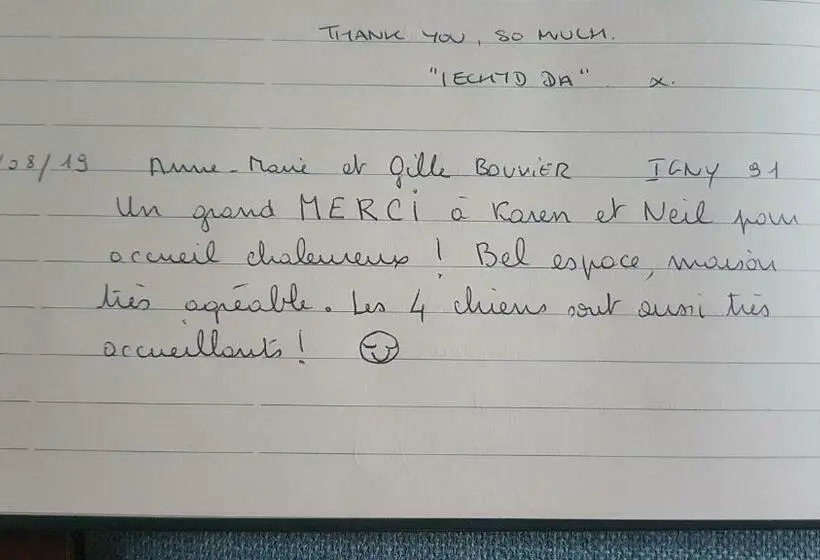 THANK YOU, SO MUCH.
"IECHYD DA" x.
/08/19 Anne-Marie et Gille BOUVIER IGNY 91
Un grand MERCI à Karen et Neil pour
accueil chaleureux ! Bel espace, maison
très agréable. Les 4 chiens sont aussi très
accueillants !